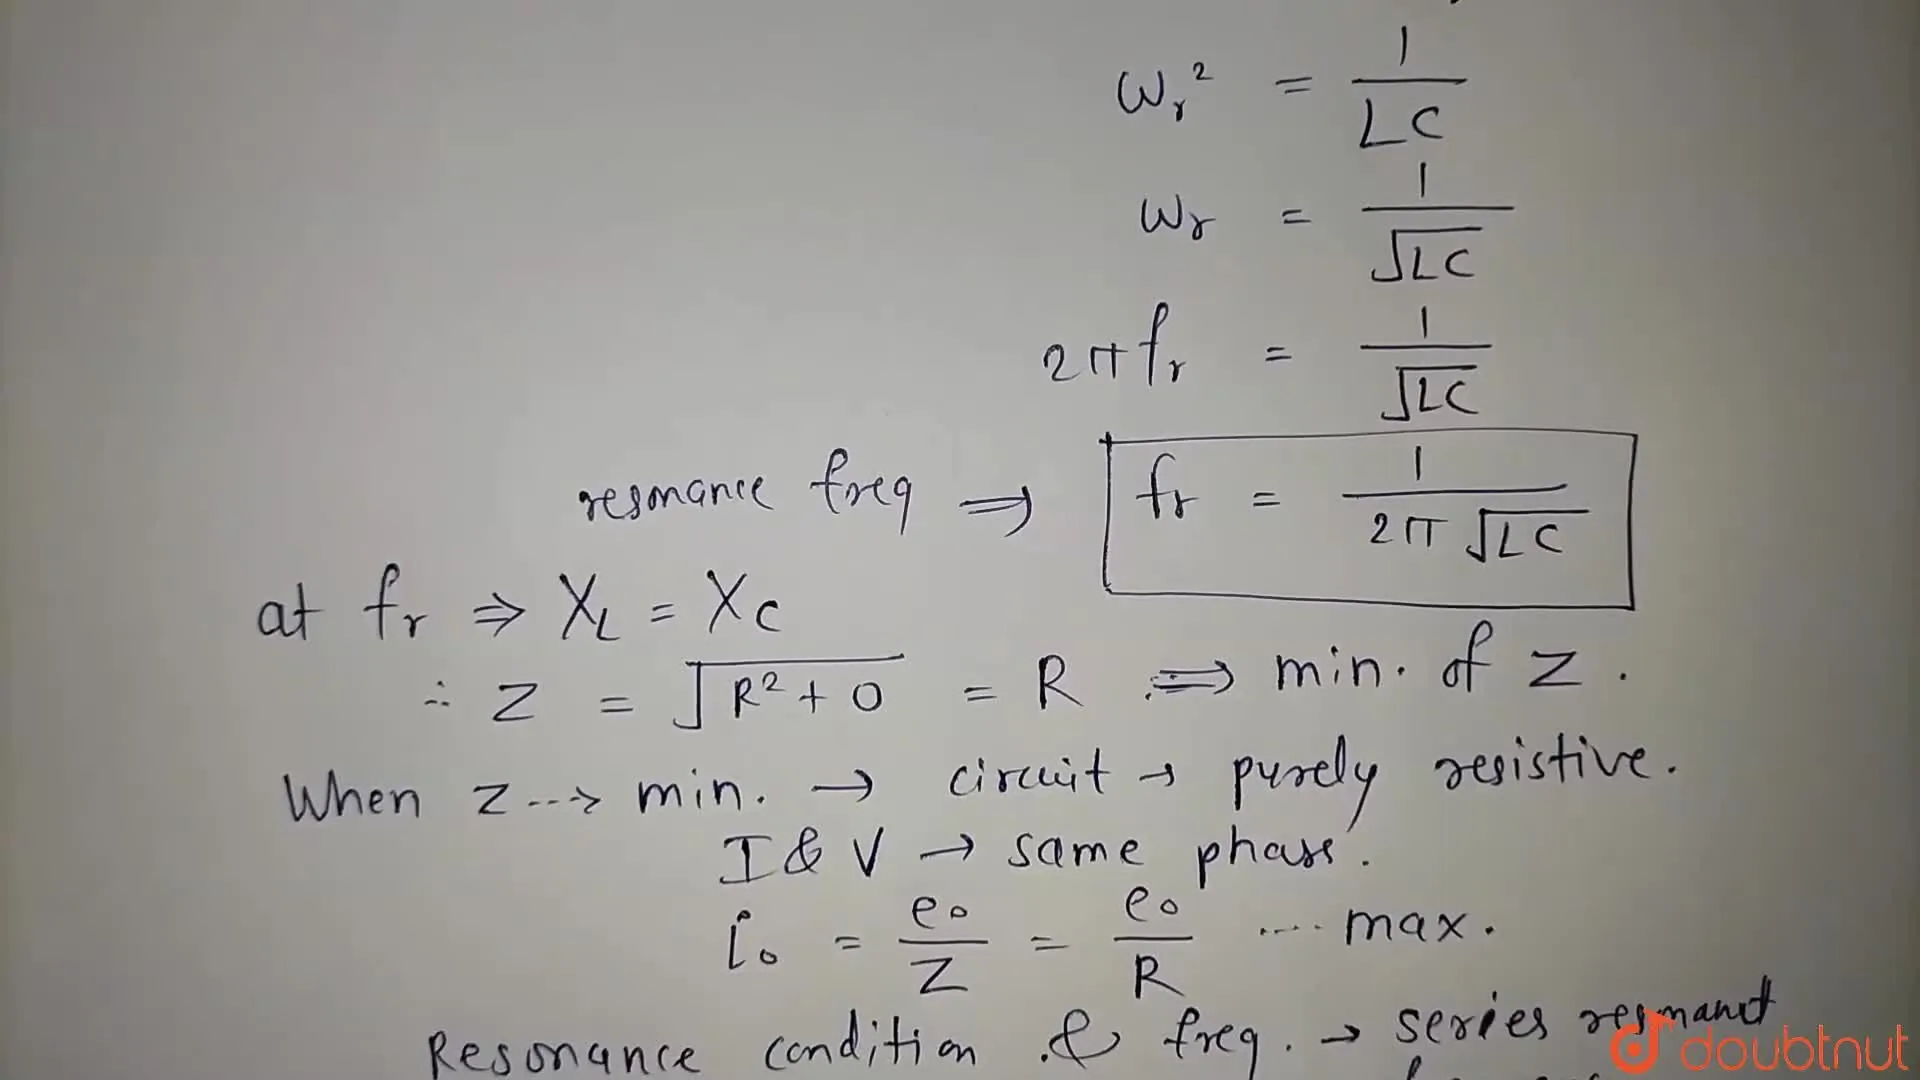 ωr² = 1/LC
ωr = 1/√LC
2πfr = 1/√LC
resonance freq ⇒ fr = 1/2π√LC
at fr ⇒ XL = XC
∴ Z = √R²+0 = R ⇒ min. of Z.
When Z ---> min. → circuit → purely resistive.
I & V → same phase.
i₀ = e₀/Z = e₀/R .... max.
Resonance condition & freq. → series resonant
doubtnut